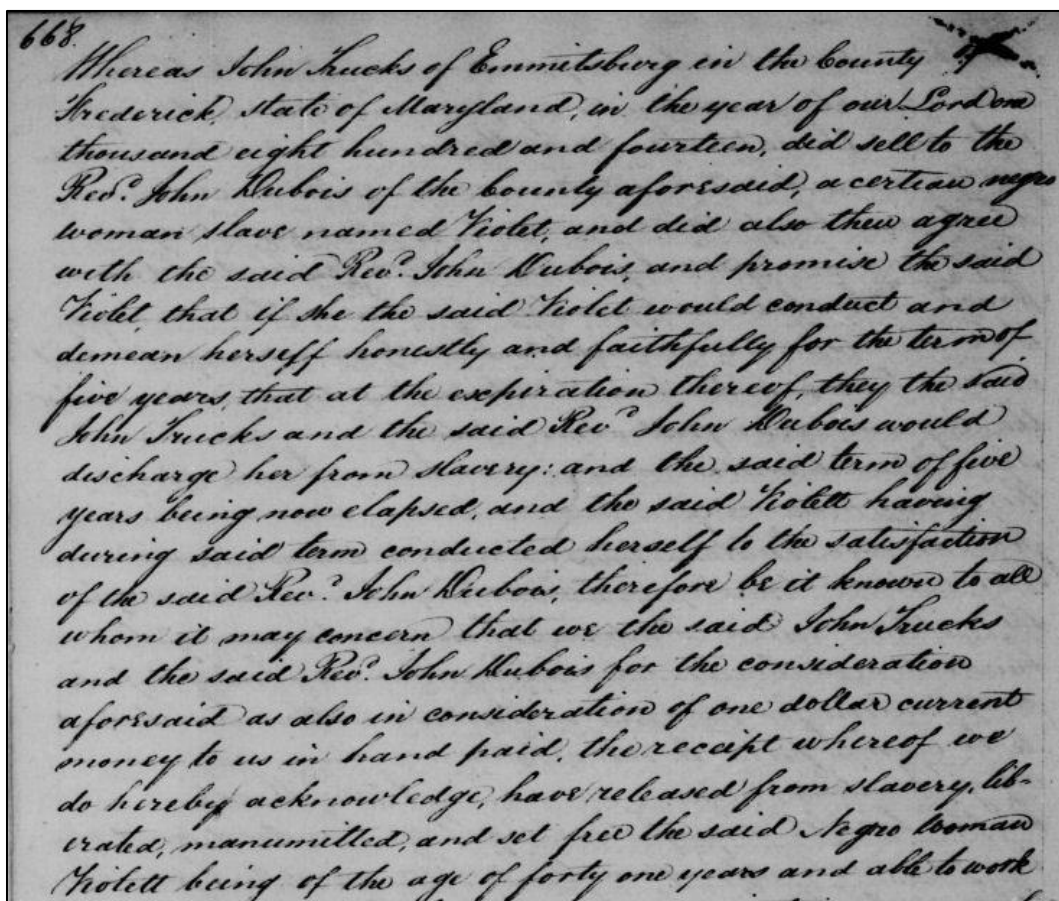 668.
Whereas John Trucks of Emmitsburg in the County of
Frederick, state of Maryland, in the year of our Lord one
thousand eight hundred and fourteen, did sell to the
Revd. John Dubois of the County aforesaid, a certian negro
woman slave named Violet, and did also then agree
with the said Revd. John Dubois, and promise the said
Violet, that if she the said Violet would conduct and
demean herself honestly and faithfully for the term of
five years, that at the expiration thereof, they the said
John Trucks and the said Revd John Dubois would
discharge her from slavery: and the said term of five
years being now elapsed, and the said Violett having
during said term conducted herself to the satisfaction
of the said Revd. John Dubois, therefore be it known to all
whom it may concern that we the said John Trucks
and the said Revd. John Dubois for the consideration
aforesaid as also in consideration of one dollar current
money to us in hand paid, the receipt whereof we
do hereby acknowledge, have released from slavery, lib-
erated, manumitted, and set free the said Negro Woman
Violett being of the age of forty one years and able to work